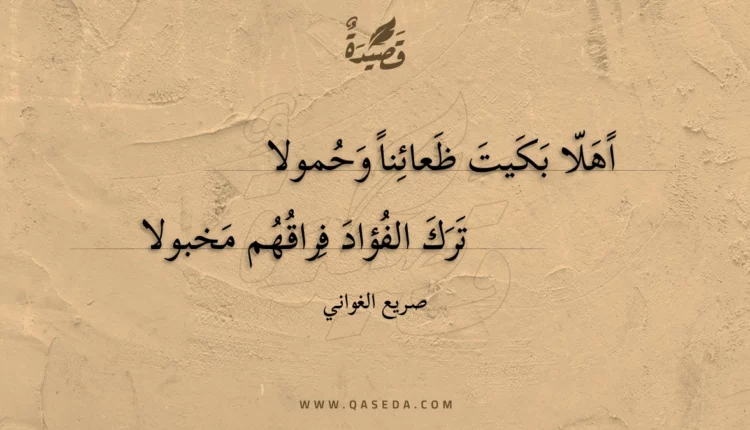 قَصِيْدَةٌ
اًهَلّا بَكَيتَ ظَعائِناً وَحُمولا
تَرَكَ الفُؤادَ فِراقُهُم مَخبولا
صريع الغواني
WWW.QASEDA.COM